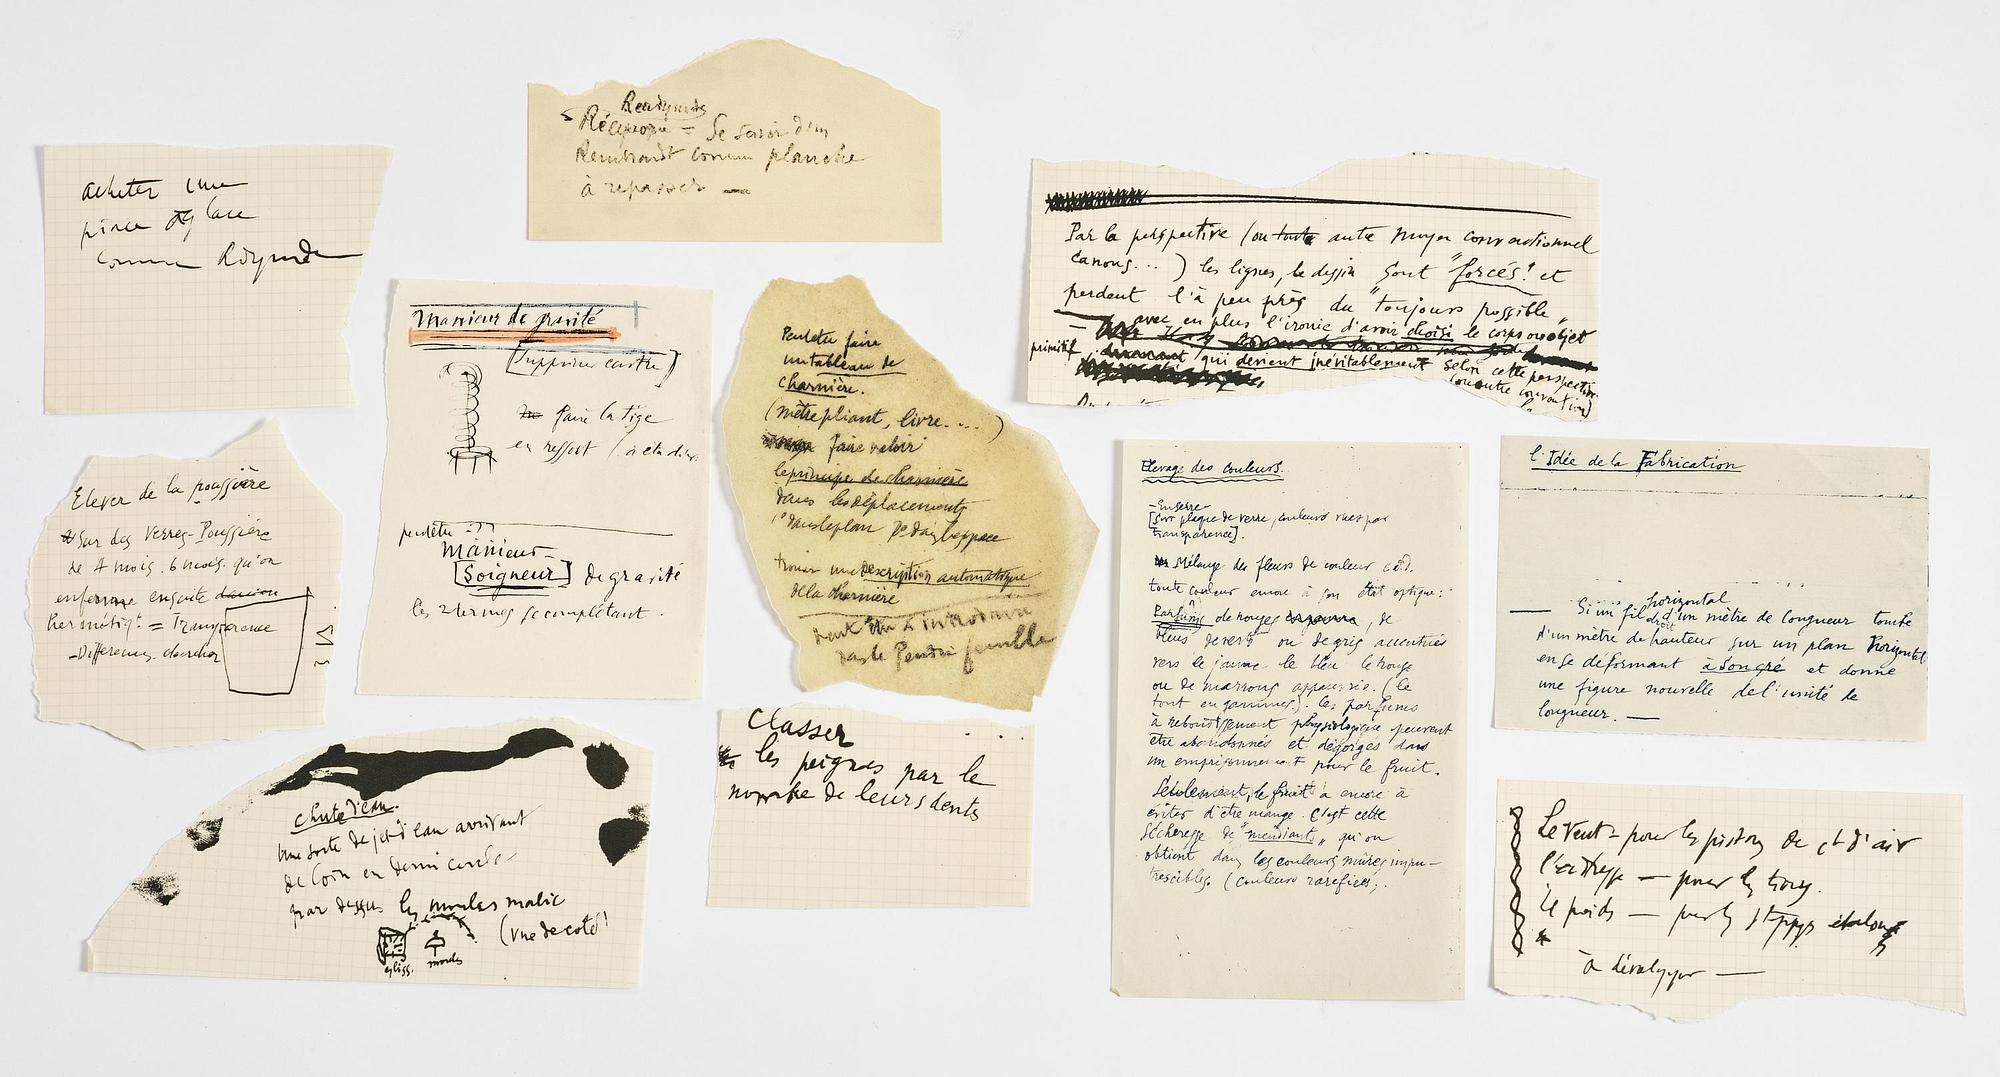 acheter une
pince à glace
comme Rdymde
Readymade
Réciproque = Se servir d'un
Rembrandt comme planche
à repasser —
Par la perspective (ou toute autre moyen conventionnel
canons...) les lignes, le dessin sont "forcés" et
perdent l'à peu près du "toujours possible"
— avec en plus l'ironie d'avoir choisi le corps ou objet
primitif, qui devient inévitablement selon cette perspective
(ou autre convention)
Manieur de gravité
[Supprimer contre]
faire la tige
en ressort (à étudier
peutêtre :
manieur
[Soigneur] de gravité
les 2 termes se complétant.
Peutêtre faire
un tableau de
charnière.
(mètre pliant, livre....)
faire valoir
le principe de charnière
dans les déplacements
1° dans le plan 2° dans l'espace
trouver une description automatique
de la charnière
Peut être à introduire
dans le Pendu femelle
Elever de la poussière
Sur des Verres-Poussière
de 4 mois. 6 mois. qu'on
enferme ensuite
hermétiqt = Transparence
— Différences. chercher
Elevage des couleurs.
— En serre —
[Sur plaque de verre, couleurs vues par
transparence].
Mélange des fleurs de couleur c.à.d.
toute couleur encore à son état optique:
Parfums de rouges, de
bleus de verts ou de gris accentués
vers le jaune le bleu le rouge
ou de marrons appauvris. (le
tout en gammes.). Ces parfums
à reboussement physiologique peuvent
être abandonnés et dégorgés dans
un emprisonnement pour le fruit.
Seulement, le fruit a encore à
éviter d'être mangé. C'est cette
sécheresse de "mendiants" qu'on
obtient dans les couleurs mûres impu—
trescibles. (couleurs raréfiées.
l'Idée de la Fabrication
— Si un fil droit horizontal d'un mètre de longueur tombe
d'un mètre de hauteur sur un plan horizontal
en se déformant à son gré et donne
une figure nouvelle de l'unité de
longueur. —
chute d'eau.
Une sorte de jet d'eau arrivant
de loin en demi cercle —
par dessus les moules malic
(vue de coté)
gliss.
moules
Classer
les peignes par le
nombre de leurs dents
Le Vent — pour les pistons de ct d'air
L'adresse — pour les trous.
Le poids — pour les stoppages étalons
à développer —